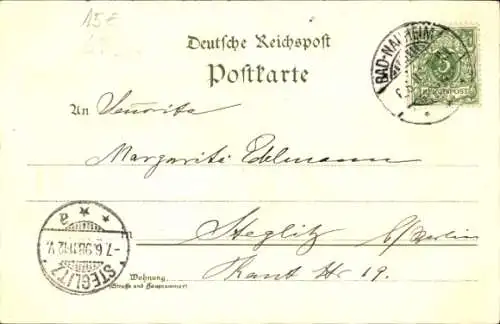 15€
Deutsche Reichspost
Postkarte
BAD-NAUHEIM
5
REICHSPOST
An Señorita
Margarita Edelmann
Steglitz b/Berlin
Kant Str 19.
STEGLITZ
* * a
-7.6.98.11-12.V.
Wohnung
(Straße und Hausnummer)